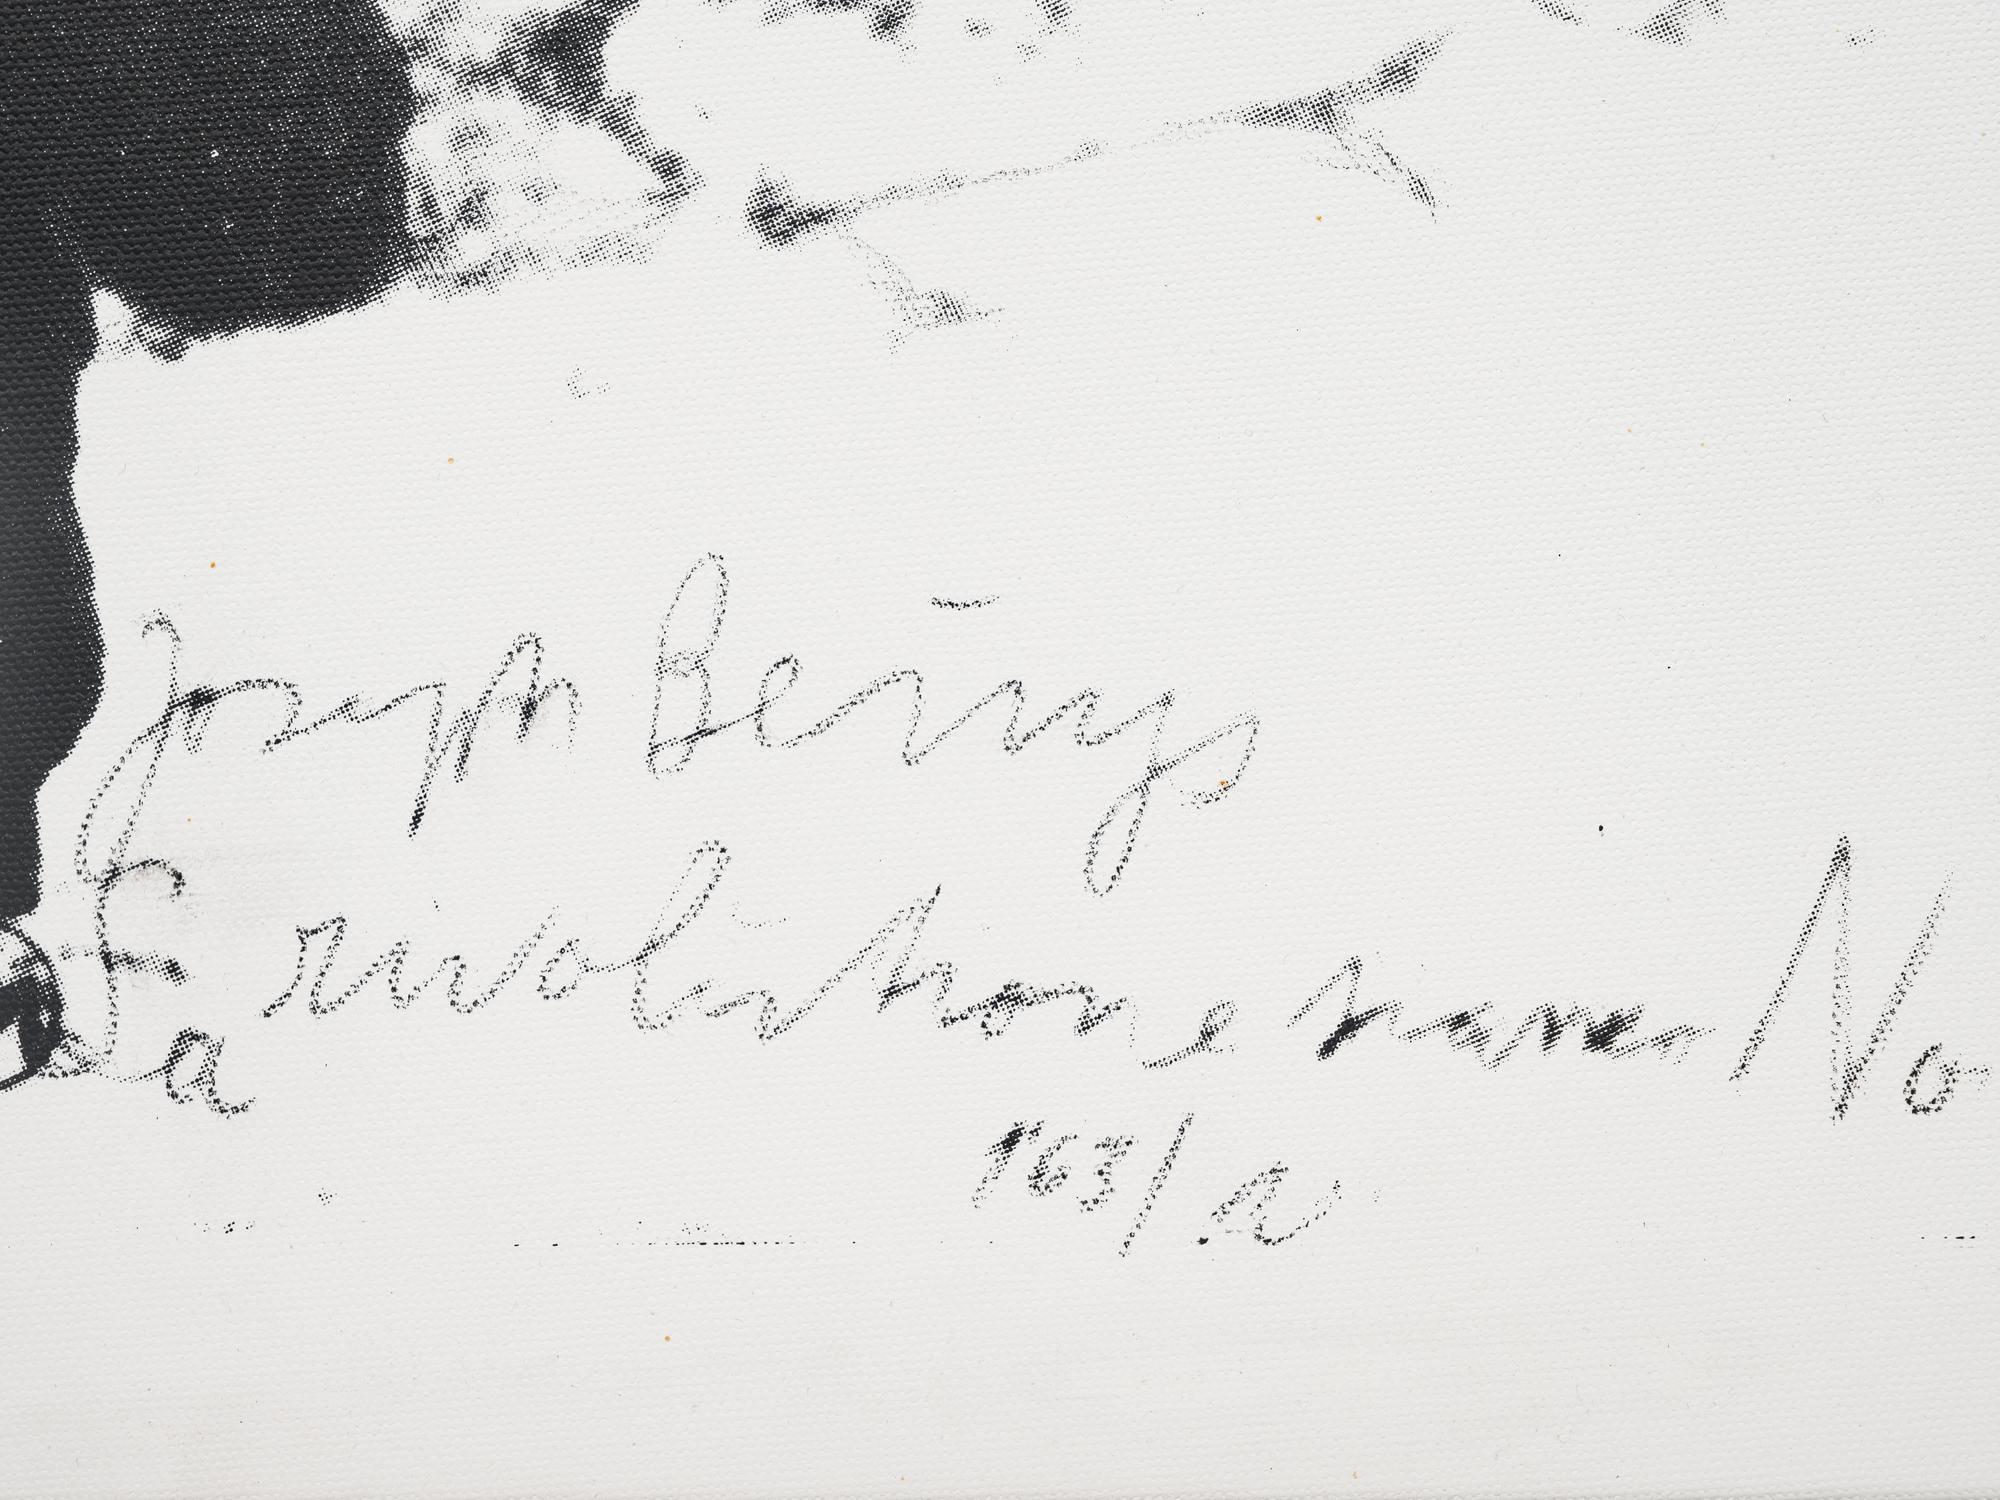 Joseph Beuys
La rivoluzione siamo No
163/